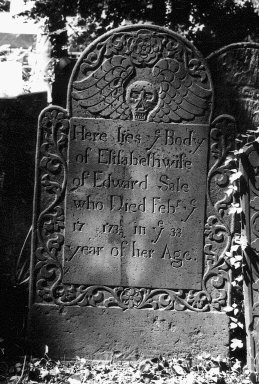 Here lies yͤ Body
of Elisabeth wife
of Edward Sale
who Died Febʳʸ yͤ
17 173¾ in yͤ 33
year of her Age.